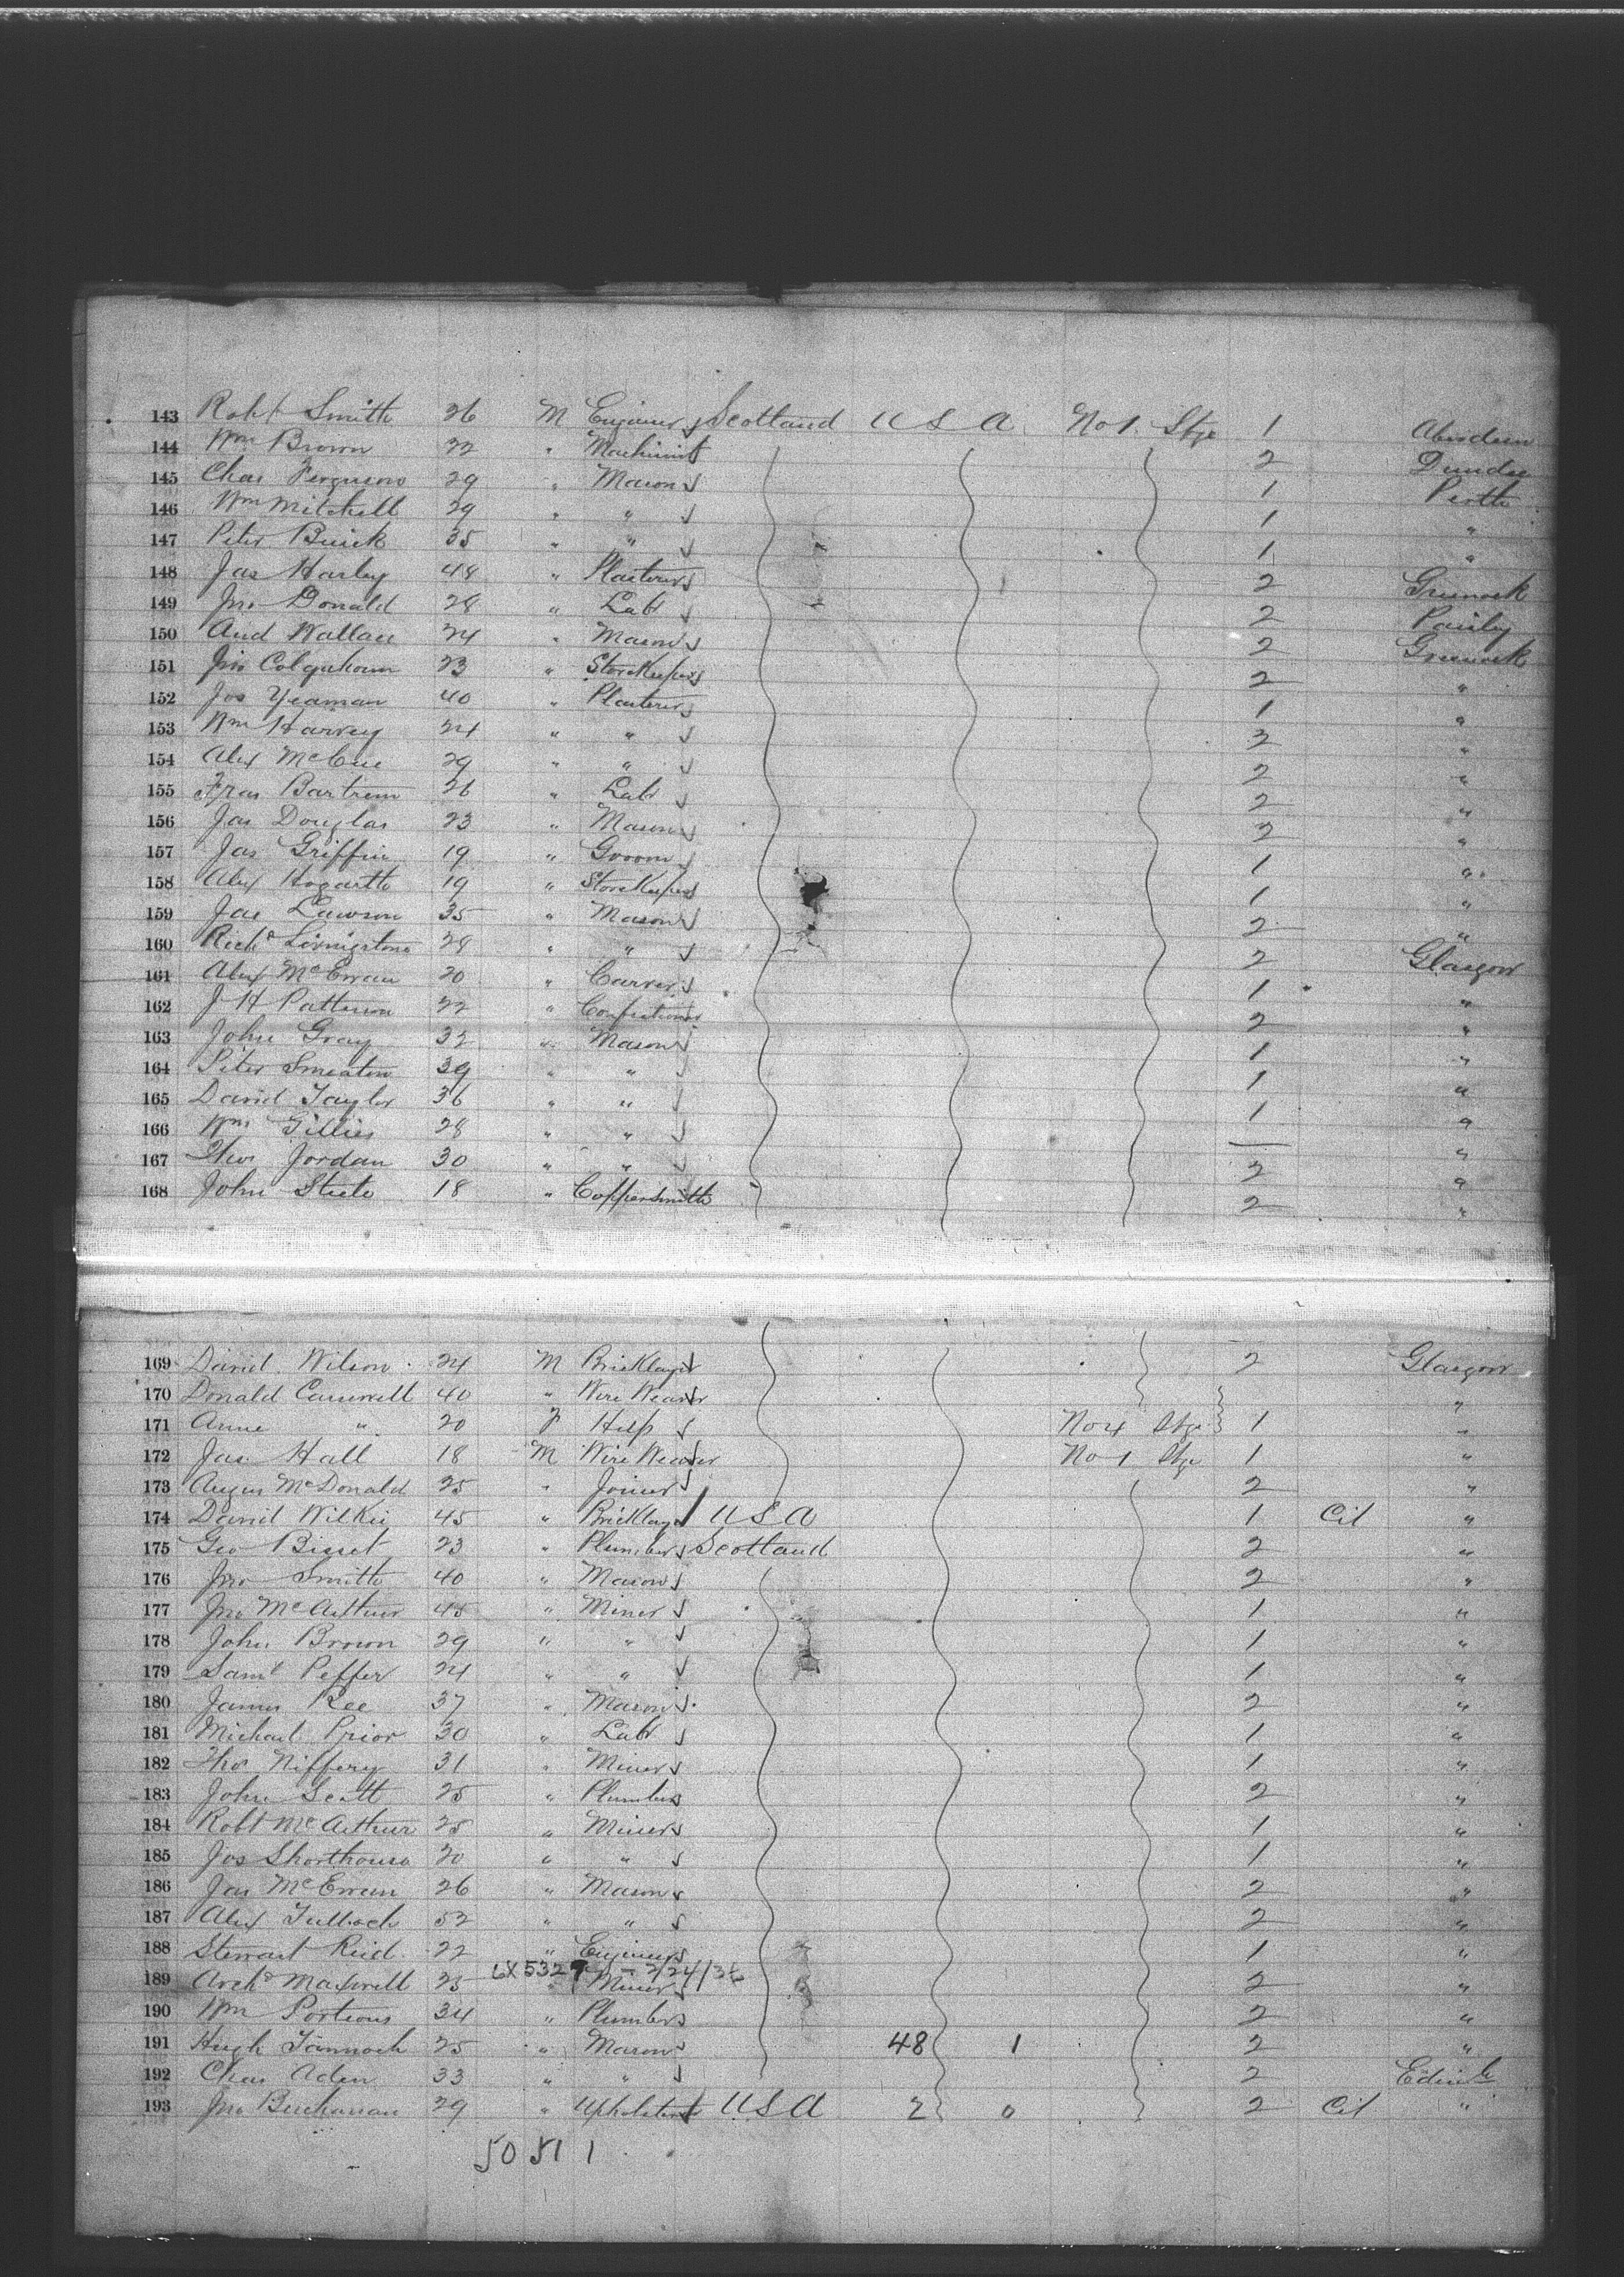 143 Robt Smith 26 M Engineer Scotland U S A No 1. Stge 1 Aberdeen
144 Wm Brown 22 " Machinist 2 Dundee
145 Chas Ferguson 29 " Mason 1 Perth
146 Wm Mitchell 29 " " 1 "
147 Peter Buick 35 " " 1 "
148 Jas Harley 48 " Plasterer 2 Greenock
149 Jno Donald 28 " Labr 2 Paisley
150 And Wallace 24 " Mason 2 Greenock
151 Jno Colquhoun 23 " StoreKeeper 2 "
152 Jos Yeaman 40 " Plasterer 1 "
153 Wm Harvey 24 " " 2 "
154 Alex McCue 29 " " 2 "
155 Fras Bartrem 26 " Labr 2 "
156 Jas Douglas 23 " Mason 2 "
157 Jas Griffin 19 " Groom 1 "
158 Alex Hogarth 19 " StoreKeeper 1 "
159 Jas Lawson 35 " Mason 2 "
160 Richd Livingstone 28 " " 2 Glasgow
161 Alex McEwan 20 " Carver 1 "
162 J H Patterson 22 " Confectioner 2 "
163 John Gray 32 " Mason 1 "
164 Peter Smeaton 39 " " 1 "
165 David Taylor 36 " " 1 "
166 Wm Gillies 28 " " — "
167 Thos Jordan 30 " " 2 "
168 John Steele 18 " Coppersmith 2 "
169 David Wilson 24 M Bricklayer 2 Glasgow
170 Donald Camwell 40 " Wire Weaver "
171 Anne " 20 F Help No 4 Stge 1 "
172 Jas Hall 18 M Wire Weaver No 1 Stge 1 "
173 Angus McDonald 25 " Joiner 2 "
174 David Wilkie 45 " Bricklayer U S A 1 Cit "
175 Geo Bisset 23 " Plumber Scotland 2 "
176 Jno Smith 40 " Mason 2 "
177 Jno McArthur 45 " Miner 1 "
178 John Brown 29 " " 1 "
179 Saml Peffer 24 " " 1 "
180 James Ree 37 " Mason 2 "
181 Michael Prior 30 " Labr 1 "
182 Thos Niffery 31 " Miner 1 "
183 John Scott 25 " Plumber 2 "
184 Robt McArthur 25 " Miner 1 "
185 Jos Shorthouse 20 " " 1 "
186 Jas McEwan 26 " Mason 2 "
187 Alex Tulloch 52 " " 2 "
188 Stewart Reid 22 " Engineer 1 "
6X 5327 - 2/24/36
189 Archd Maxwell 25 " Miner 2 "
190 Wm Porteous 34 " Plumber 2 "
191 Hugh Tannock 25 " Mason 48 1 2 "
192 Chas Aden 33 " " 2 Edinb
193 Jno Buchanan 29 " Upholsterer U S A 2 0 2 Cit "
50 51 1